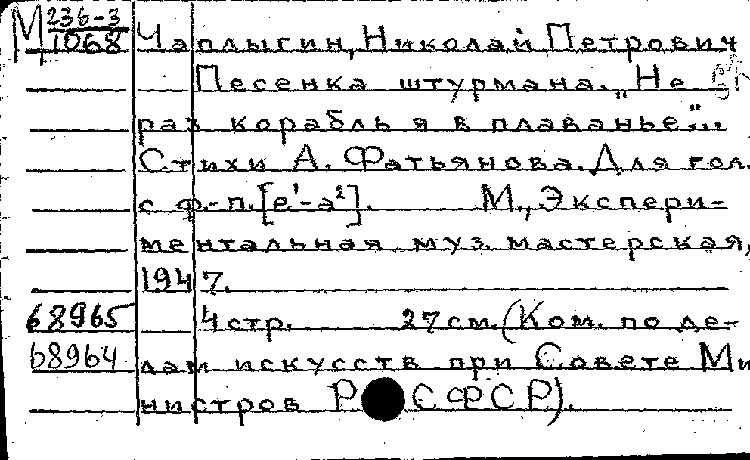 М 236-3
1068 Чаплыгин, Николай Петрович
Песенка штурмана. „Не
раз корабль я в плаванье"...
Стихи А. Фатьянова. Для гол.
с ф.-п. [e¹-a²]. М., Экспери-
ментальная муз. мастерская,
1947.
68965 4 стр. 27 см. (Ком. по де-
68964 лам искусств при Совете Ми
нистров РСФСР).